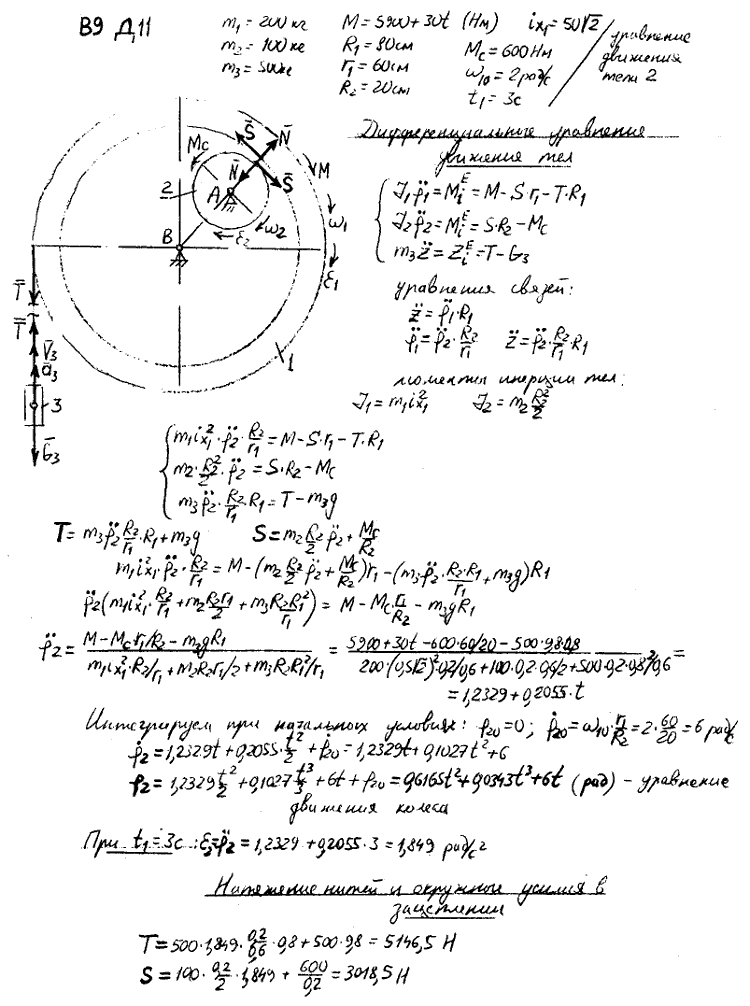 В9 Д11
m₁ = 200 кг  M = 5900 + 30t (Нм)  iₓ₁ = 50√2
m₂ = 100 кг  R₁ = 80 см  M_C = 600 Нм
m₃ = 500 кг  r₁ = 60 см  ω₁₀ = 2 рад/с
R₂ = 20 см  t₁ = 3 с
уравнение
движения
тела 2
Дифференциальные уравнения
движения тел
J₁φ̈₁ = Mᵢᴱ = M - S·r₁ - T·R₁
J₂φ̈₂ = Mᵢᴱ = S·R₂ - M_C
m₃z̈ = Zᵢᴱ = T - G₃
M_C S̄ N̄ M
N̄ S̄
2 A
B ω₂ ε₂ ω₁ ε₁
T̄
T̄
V̄₃
ā₃
3
Ḡ₃
1
уравнения связей:
z̈ = φ̈₁·R₁
φ̈₁ = φ̈₂·R₂/r₁  z̈ = φ̈₂·R₂/r₁·R₁
моменты инерции тел:
J₁ = m₁iₓ₁²  J₂ = m₂R₂²/2
m₁iₓ₁²·φ̈₂·R₂/r₁ = M - S·r₁ - T·R₁
m₂·R₂²/2·φ̈₂ = S·R₂ - M_C
m₃φ̈₂·R₂/r₁·R₁ = T - m₃g
T = m₃φ̈₂R₂/r₁·R₁ + m₃g  S = m₂R₂/2 φ̈₂ + M_C/R₂
m₁iₓ₁²·φ̈₂·R₂/r₁ = M - (m₂R₂/2 φ̈₂ + M_C/R₂)r₁ - (m₃φ̈₂·R₂·R₁/r₁ + m₃g)R₁
φ̈₂(m₁iₓ₁²·R₂/r₁ + m₂R₂r₁/2 + m₃R₂R₁²/r₁) = M - M_C r₁/R₂ - m₃gR₁
φ̈₂ = (M - M_C r₁/R₂ - m₃gR₁)/(m₁iₓ₁²·R₂/r₁ + m₂R₂r₁/2 + m₃R₂R₁²/r₁) = (5900 + 30t - 600·60/20 - 500·9.8·0,8)/(200·(0,5√2)²·0,2/0,6 + 100·0.2·0,6/2 + 500·0.2·0,8²/0,6) =
= 1,2329 + 0,2055·t
Интегрируем при начальных условиях: φ₂₀ = 0; φ̇₂₀ = ω₁₀·r₁/R₂ = 2·60/20 = 6 рад/с
φ̇₂ = 1,2329t + 0,2055·t²/2 + φ̇₂₀ = 1,2329t + 0,1027t² + 6
φ₂ = 1,2329 t²/2 + 0,1027 t³/3 + 6t + φ₂₀ = 0,6165t² + 0,0343t³ + 6t (рад) - уравнение
движения колеса
При t₁ = 3с : ε₂ = φ̈₂ = 1,2329 + 0,2055·3 = 1,849 рад/с²
Натяжение нитей и окружные усилия в
зацеплении
T = 500·1,849·0,2/0,6·0,8 + 500·9,8 = 5146,5 Н
S = 100·0,2/2·1,849 + 600/0,2 = 3018,5 Н